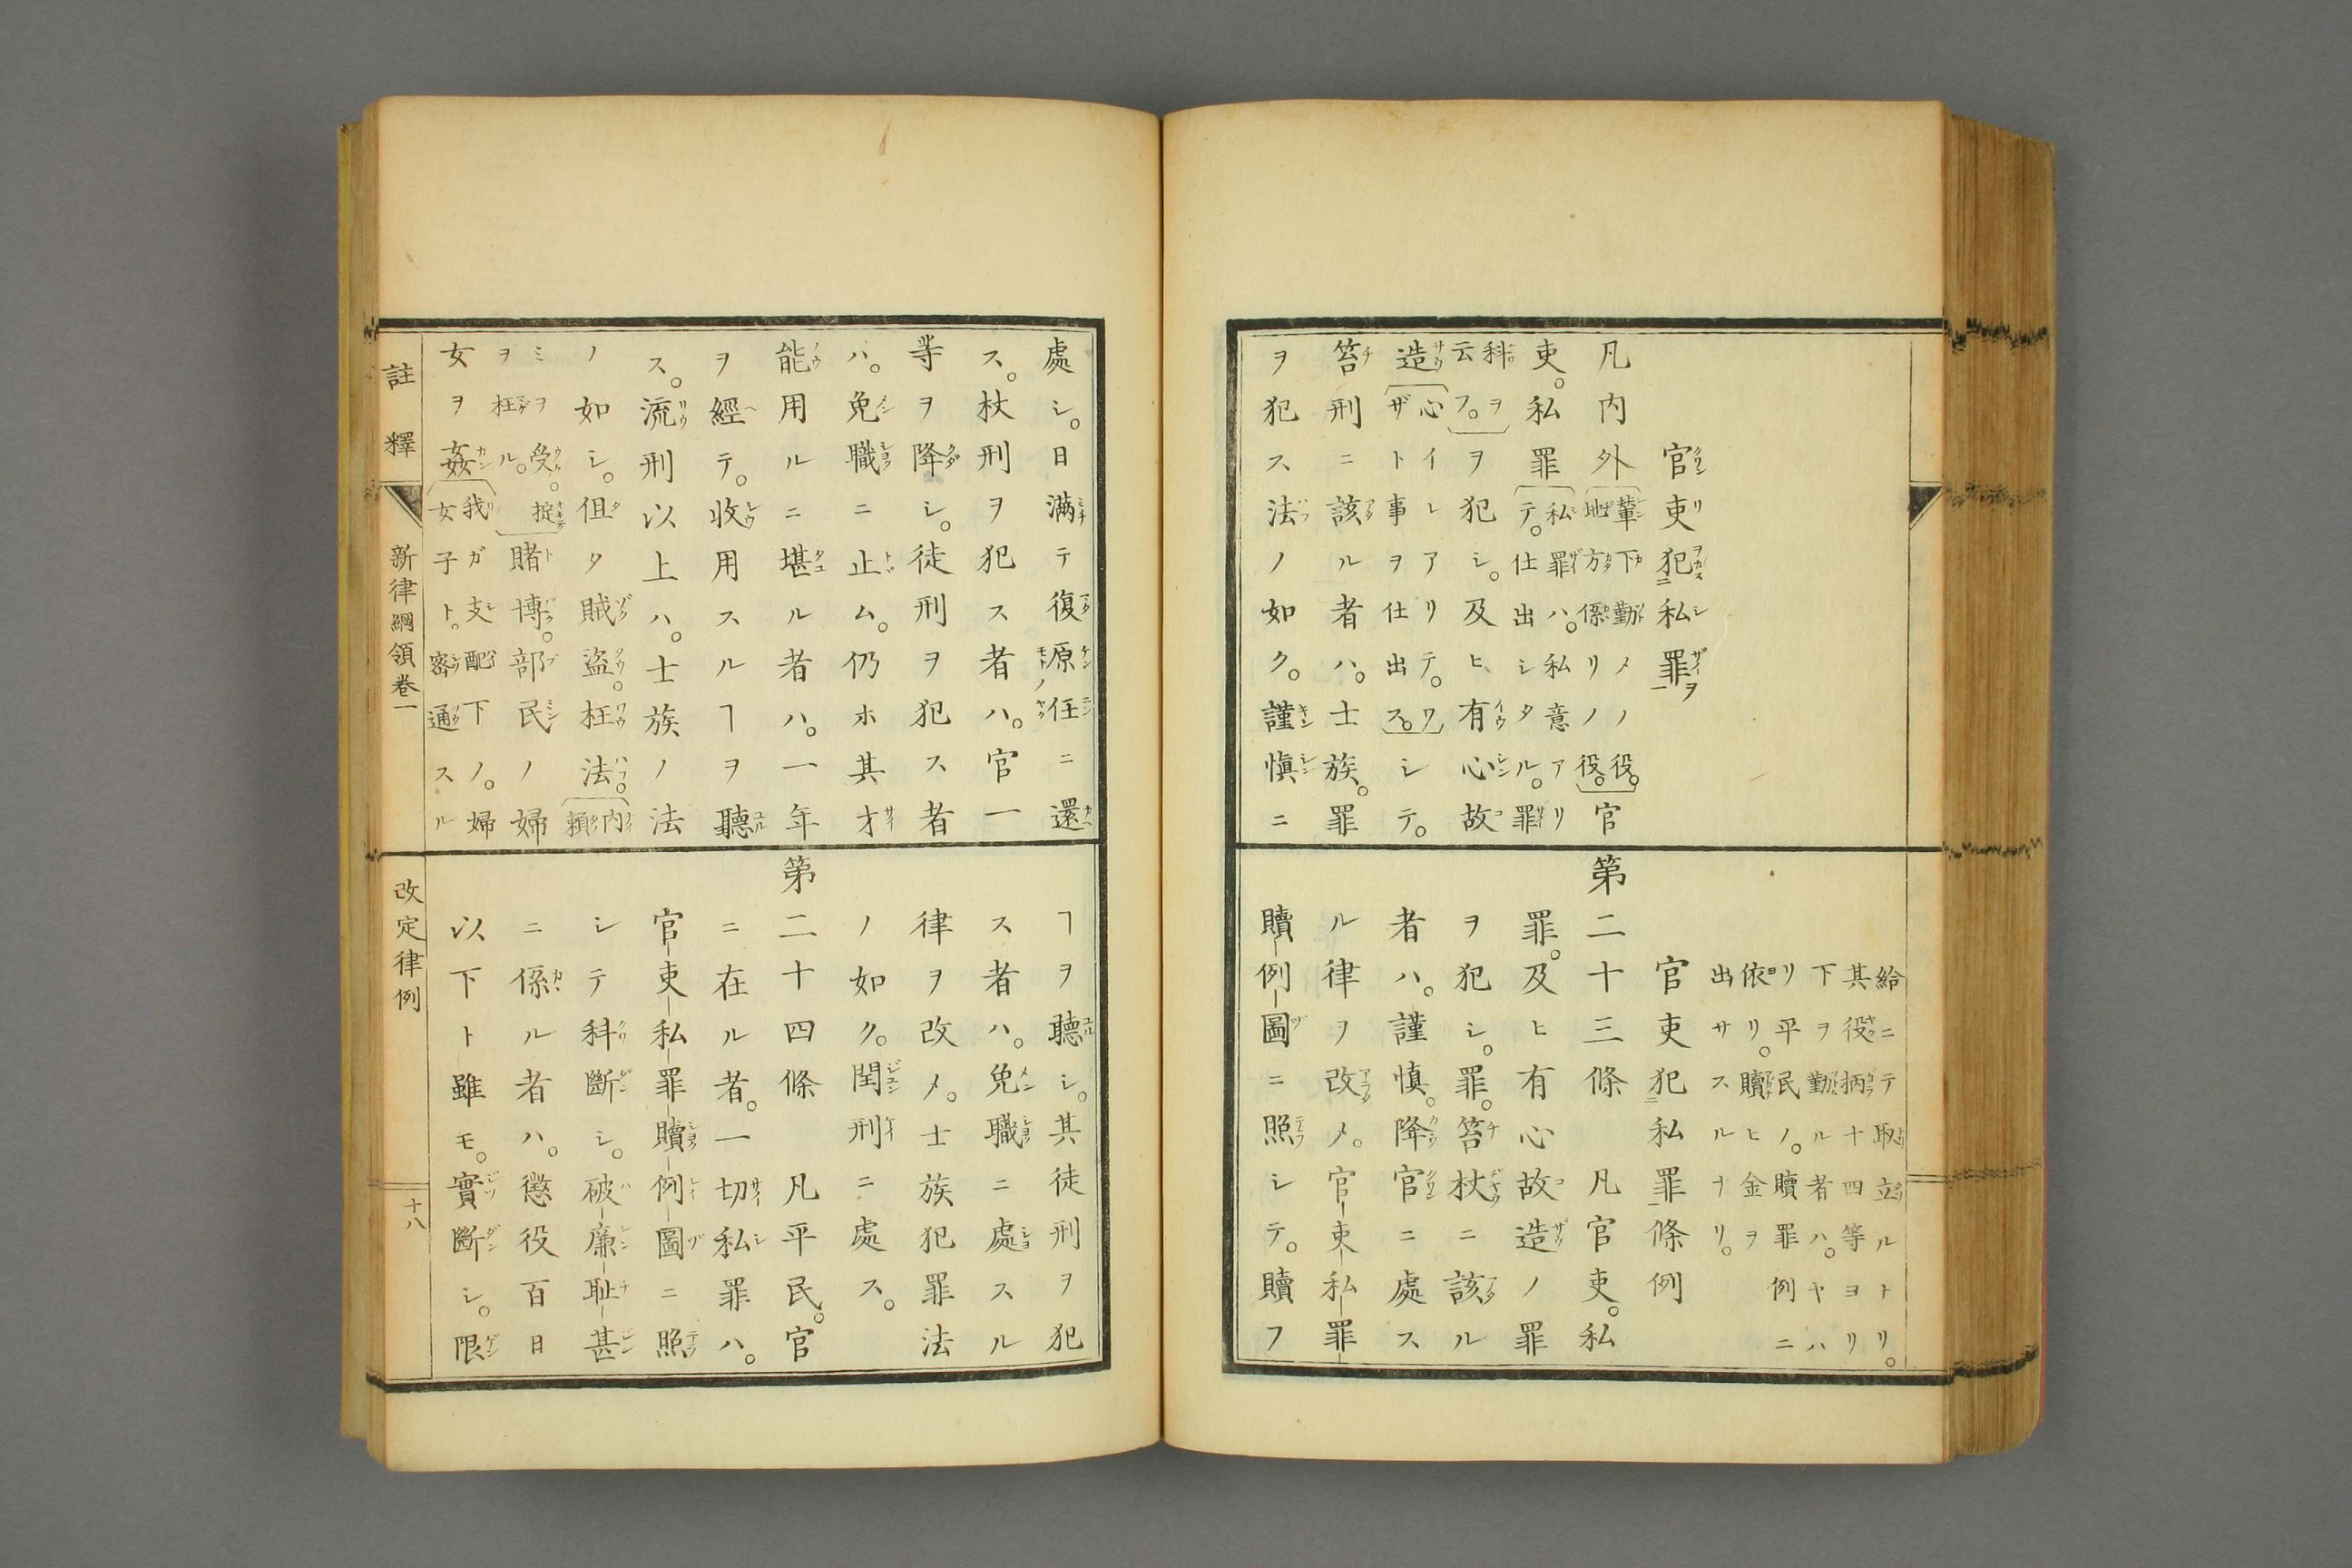 官吏犯二私罪一
凡内外(輦下勤メノ役。地方係リノ役。)官
吏。私罪(私罪ハ。私意アリテ。仕出シタル。罪
科ヲ云フ。)ヲ犯シ。及ヒ有心故
造(心イレアリテ。ワザト事ヲ仕出ス。)シテ。
笞刑ニ該ル者ハ。士族。罪
ヲ犯ス法ノ如ク。謹慎ニ
給ニテ取立ルトリ。
其役柄十四等ヨリ
下ヲ勤ル者ハ。ヤハ
リ平民ノ。贖罪例ニ
依リ。贖ヒ金ヲ
出サスルナリ。
官吏犯二私罪一條例
第二十三條 凡官吏。私
罪。及ヒ有心故造ノ罪
ヲ犯シ。罪。笞杖ニ該ル
者ハ。謹慎。降官ニ處ス
ル律ヲ改メ。官吏私罪
贖例圖ニ照シテ。贖フ
處シ。日滿テ復原任ニ還
ス。杖刑ヲ犯ス者ハ。官一
等ヲ降シ。徒刑ヲ犯ス者
ハ。免職ニ止ム。仍ホ其才
能用ルニ堪ル者ハ。一年
ヲ經テ。收用スルヿヲ聽
ス。流刑以上ハ。士族ノ法
ノ如シ。但タ賊盜。枉法。(内頼
ミヲ受。掟ヲ枉ル。)賭博。部民ノ婦
女ヲ姦(我ガ支配下ノ。婦女子ト。密通スル
ヿヲ聽シ。其徒刑ヲ犯
ス者ハ。免職ニ處スル
律ヲ改メ。士族犯罪法
ノ如ク。閏刑ニ處ス。
第二十四條 凡平民。官
ニ在ル者。一切私罪ハ。
官吏私罪贖例圖ニ照
シテ科斷シ。破廉耻甚
ニ係ル者ハ。懲役百日
以下ト雖モ。實斷シ。限
註釋 新律綱領卷一 改定律例 十八